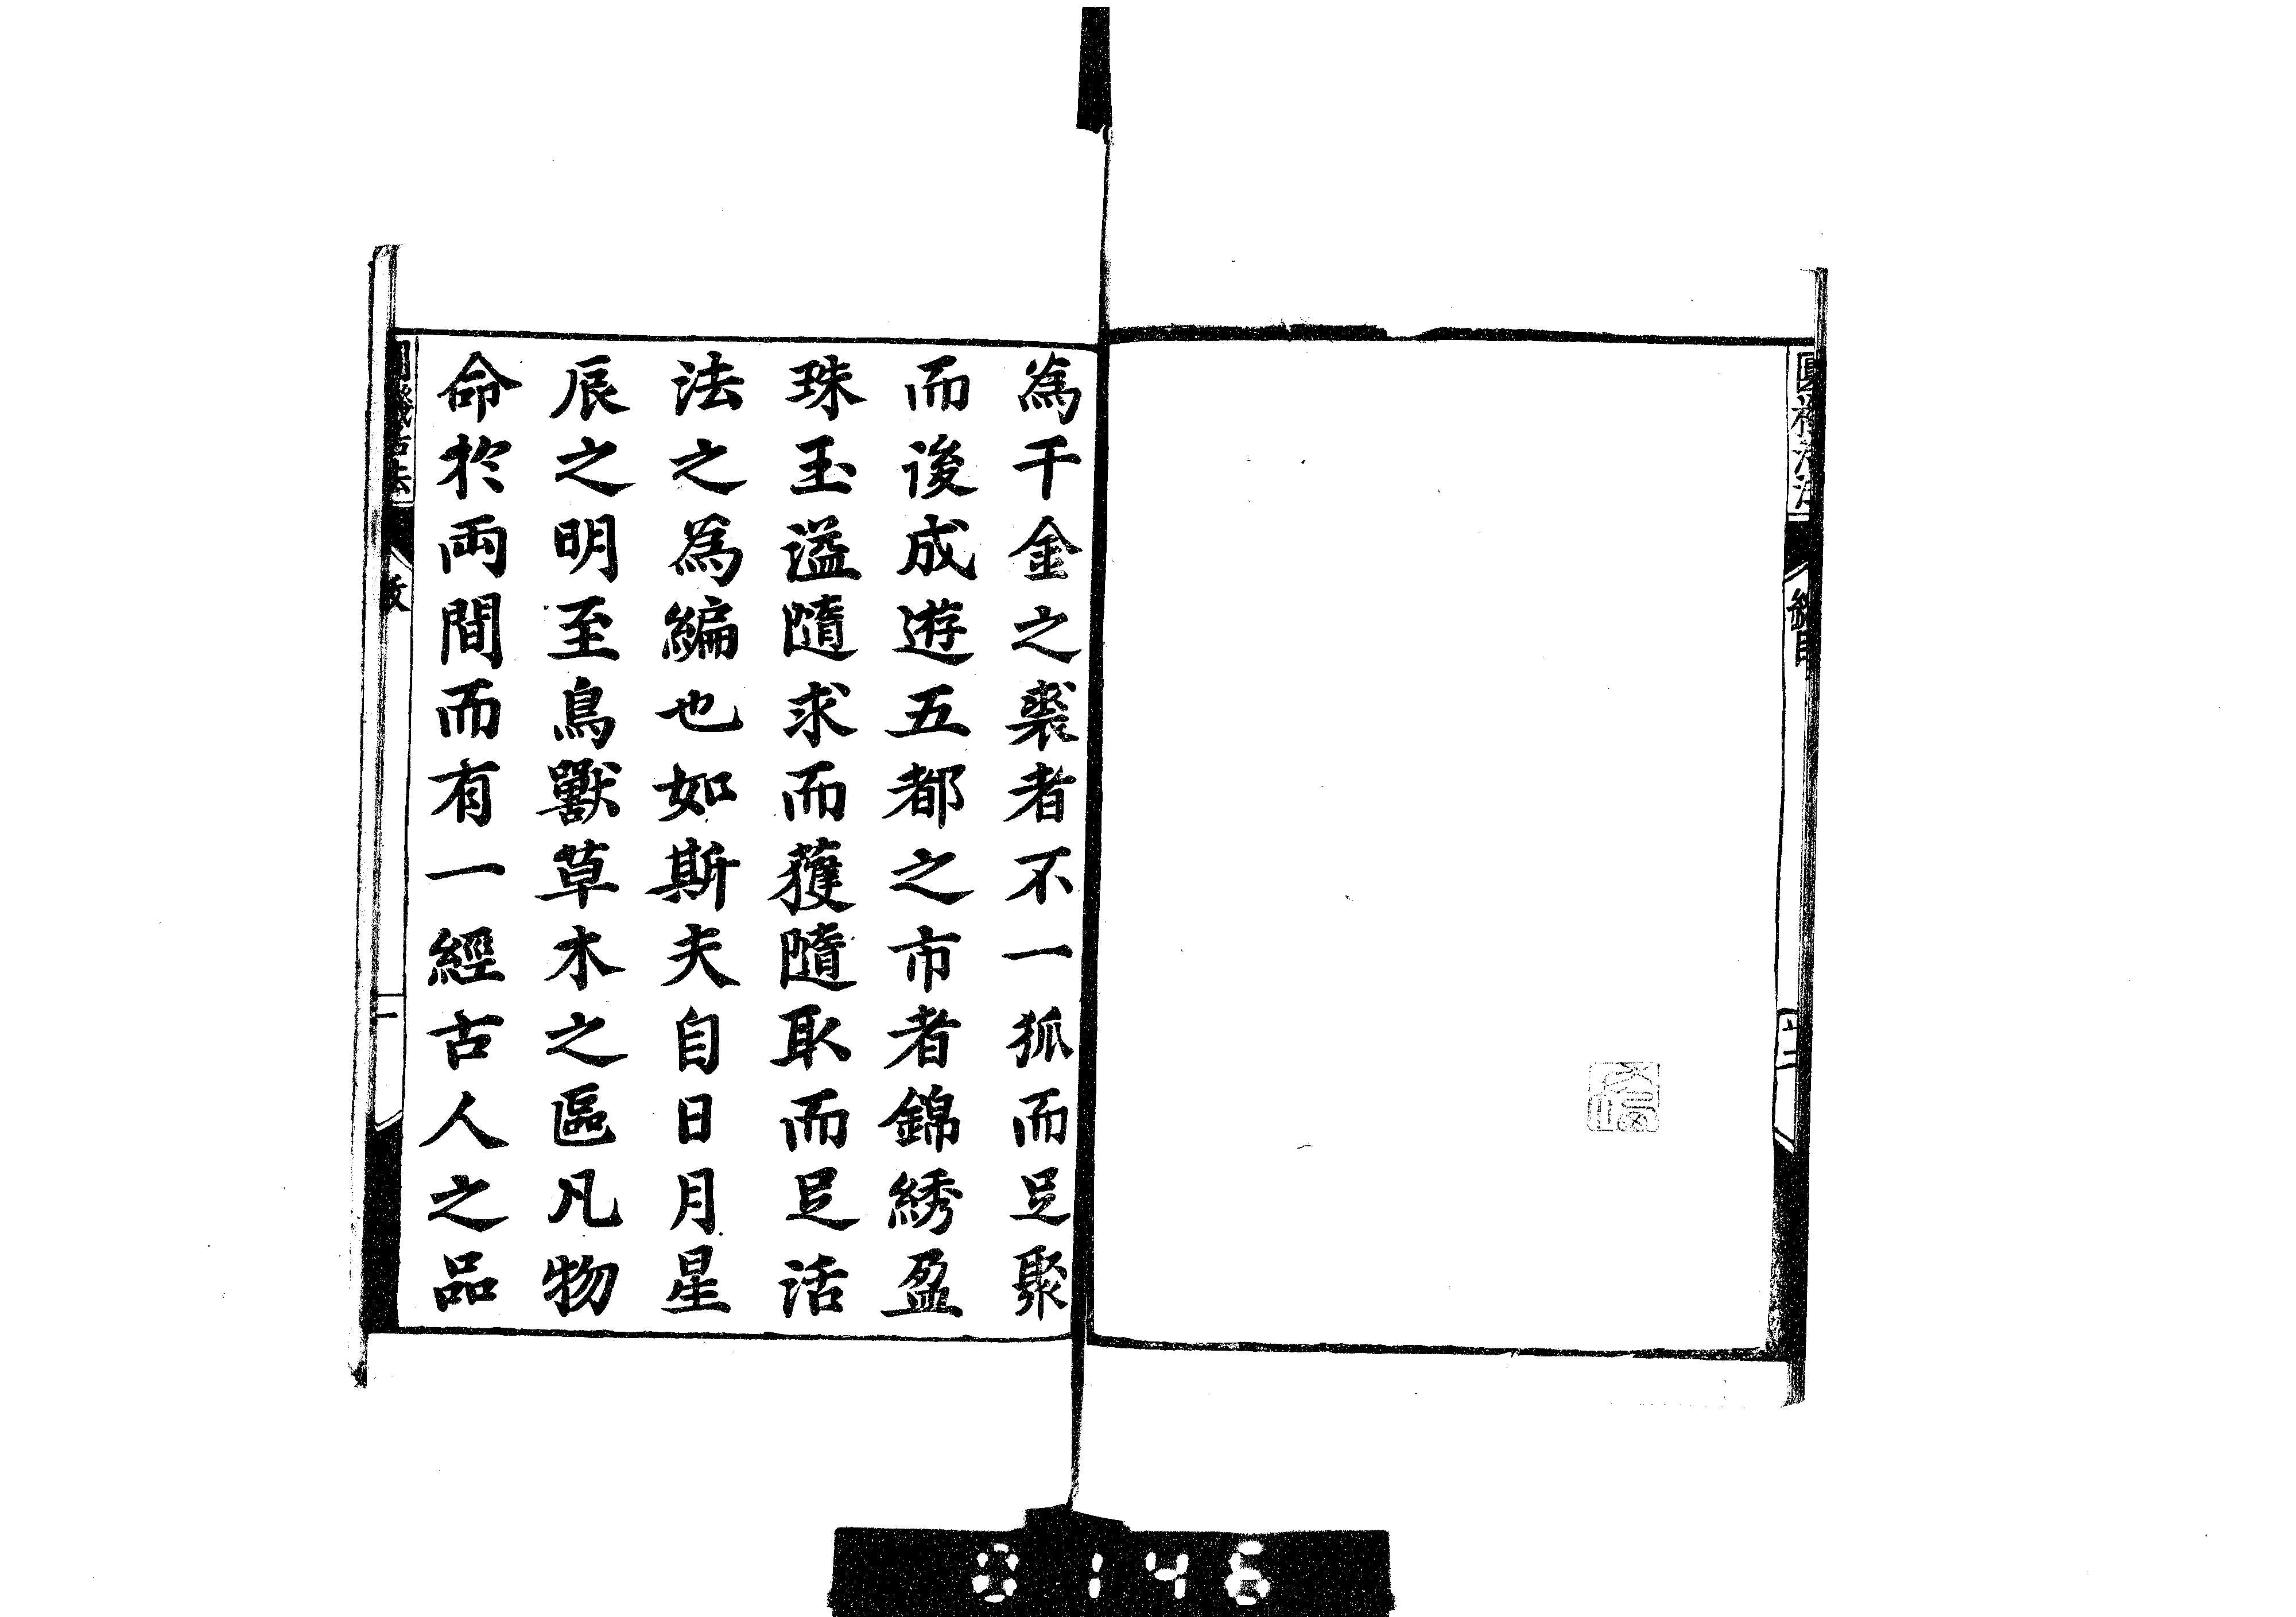 為千金之裘者不一狐而足聚
而後成遊五都之市者錦綉盈
珠玉溢隨求而獲隨取而足活
法之為編也如斯夫自日月星
辰之明至鳥獸草木之區凡物
命於両間而有一經古人之品
0146